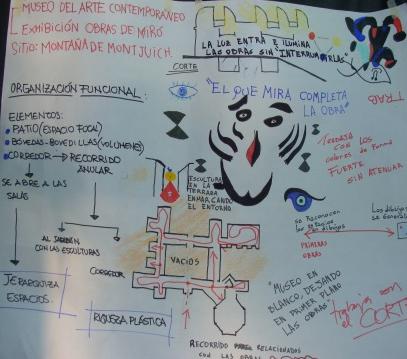 MUSEO DEL ARTE CONTEMPORÁNEO
EXHIBICIÓN OBRAS DE MIRÓ
SITIO: MONTAÑA DE MONTJUICH
LA LUZ ENTRA E ILUMINA
LAS OBRAS SIN "INTERRUMPIRLAS"
CORTE
"EL QUE MIRA COMPLETA
LA OBRA"
ORGANIZACIÓN FUNCIONAL:
ELEMENTOS:
PATIO (ESPACIO FOCAL)
BÓVEDAS-BOVEDILLAS (VOLUMENES)
CORREDOR → RECORRIDO
ANULAR
SE ABRE A LAS
SALAS
AL JARDÍN
CON LAS ESCULTURAS
JERARQUIZA
ESPACIOS
RIQUEZA PLÁSTICA
ESCULTURA
EN LA
TERRAZA
ENMARCANDO
EL ENTORNO
CORREDOR
VACIOS
TRAB
TRABAJA CON LOS
colores de forma
FUERTE
SIN ATENUAR
se Reconocen
PRIMERAS
OBRAS
Los dibujos
se General
"MUSEO EN
BLANCO, DEJANDO
EN PRIMER PLANO
LAS OBRAS"
trabajos con
el CORTE
RECORRIDO RELACIONADOS
CON LAS OBRAS